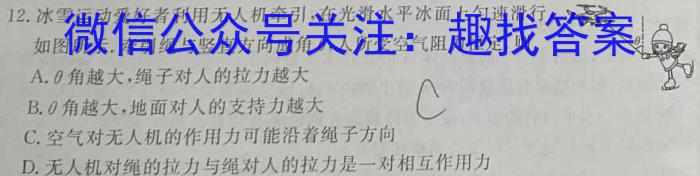 12.冰雪运动爱好者利用无人机牵引,在光滑水平冰面上匀速滑行,
如图
微信公众号关注：趣找答案
A.θ角越大,绳子对人的拉力越大
B.θ角越大,地面对人的支持力越大
C
C.空气对无人机的作用力可能沿着绳子方向
D.无人机对绳的拉力与绳对人的拉力是一对相互作用力